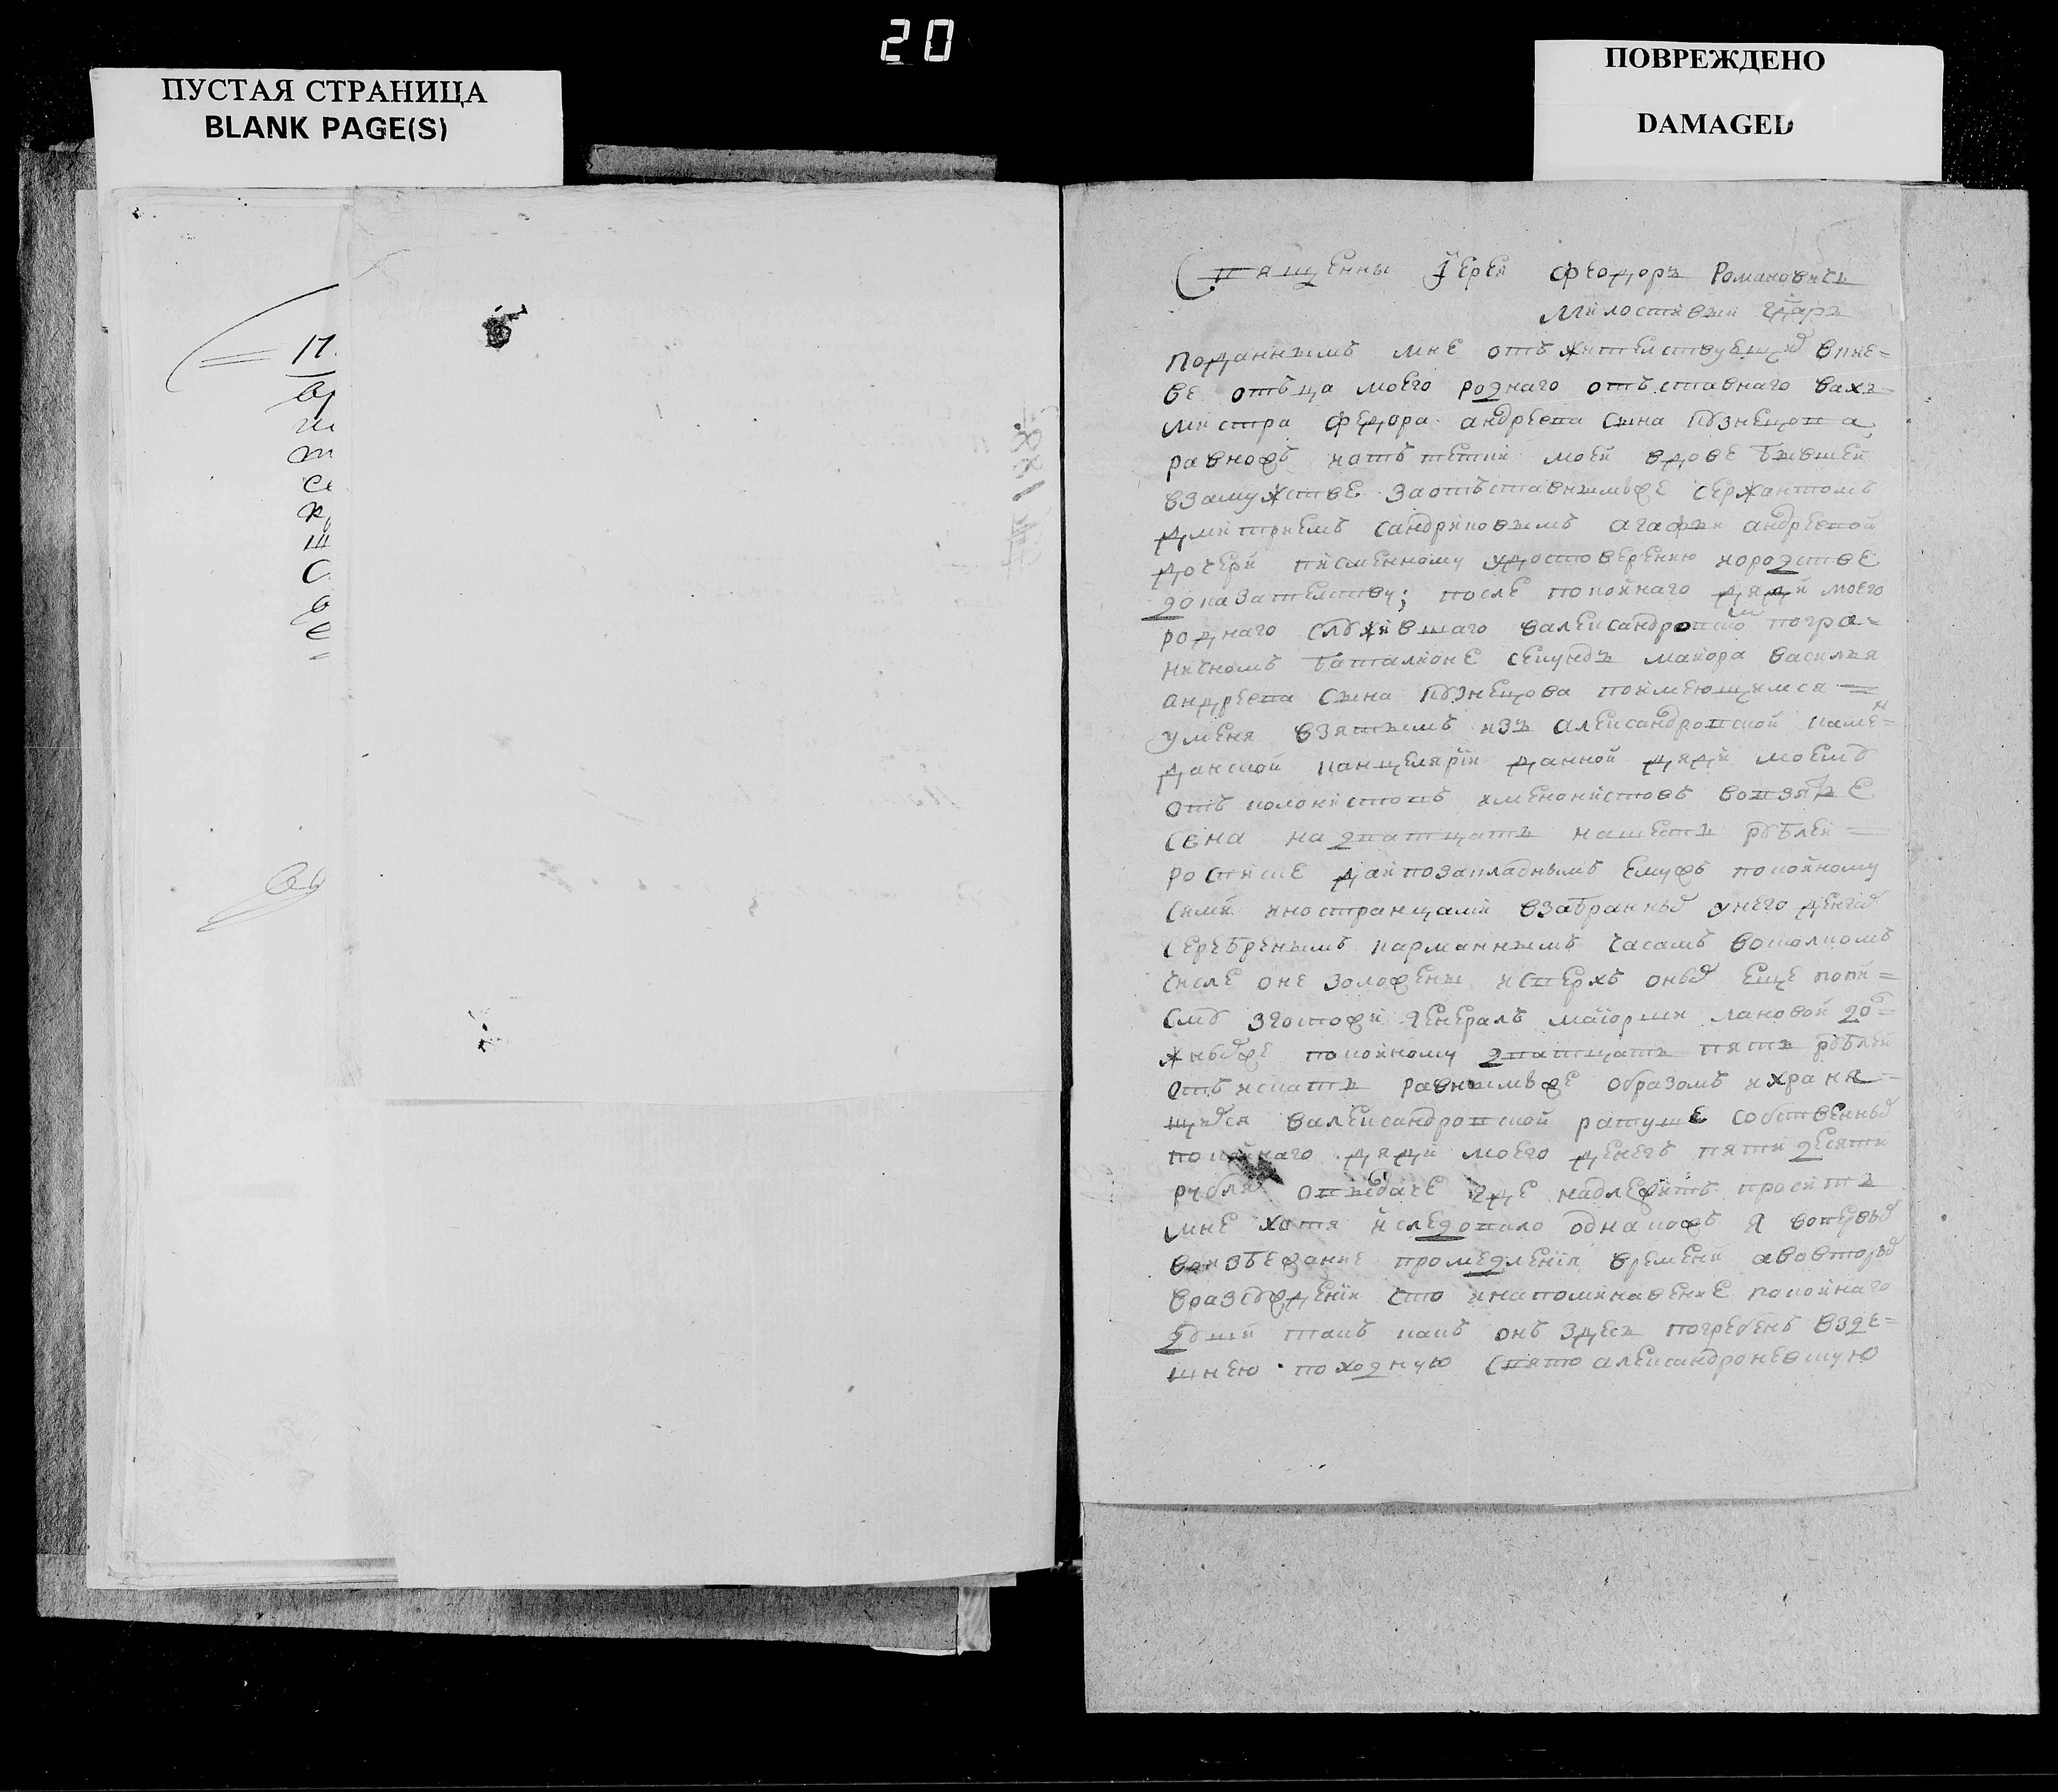 20
ПУСТАЯ СТРАНИЦА
BLANK PAGE(S)
ПОВРЕЖДЕНО
DAMAGED
Священны Іерей Феодоръ Романовичь
Милостивыи Гдарь
Поданнымъ мне отъ жителствующих вкие=
ве отъца моего роднаго отъставнаго вахъ=
мистра Федора андреева сына Кузнецова
равножъ иотъ тетки моей вдове бывшей
взамужстве заотъставнымъже сержантомъ
Дмитриемъ сандриковымъ агафьи андреевой
дочери писменному удостоверению иородстве
доказателству; после покойнаго дяди моего
роднаго служившаго валександровском погра=
ничномъ баталионе секундъ майора василья
андреева сына Кузнецова поимеющимся =
уменя взятымъ изъ александровской камен=
данской канцелярїи данной дяди моему
отъ колонистовъ именонистовъ вовзятье
сена на дватцать нашесть рублей =
росписке даипозакладнымъ емужъ покойному
сими иностранцами взабранных унего денгах
серебренымъ карманнымъ часамъ вотолкомъ
числе оне заложены исверхъ оных еще попи=
сму згоспожи генералъ маіорши лановой до=
жныхже покойному дватцать пять рублей
отъискать равнымъже образомъ ихраня=
щихся валександровской ратуше собственных
покойнаго дяди моего денегъ пяти десяти
рубля овыдаче где надлежитъ просить
мне хотя иследовало однакожъ я вопервых
воизбежание промедления времени авовторых
вразсуждении что инапоминавение покойнаго
души такъ какъ онъ здесь погребенъ взде=
шнею походную святоалександроневскую